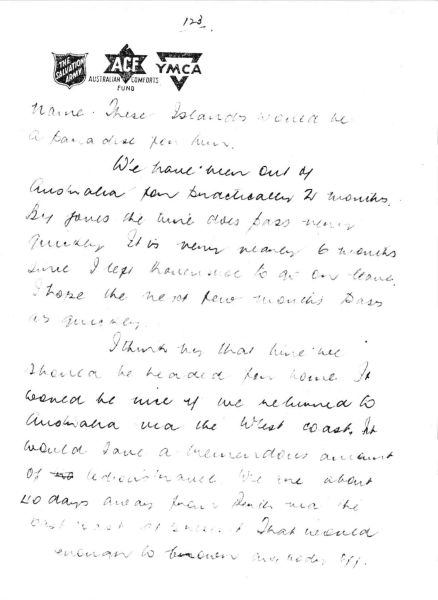 123.
THE SALVATION ARMY
ACF
AUSTRALIAN COMFORTS FUND
YMCA
name. These Islands would be
a paradise for him.
We have been out of
Australia for practically 2 months.
By Joves the time does pass very
quickly. It is very nearly 6 months
since I left to go on leave.
I hope the next few months pass
as quickly.
I think by that time we
should be headed for home. It
would be nice if we returned to
Australia via the West coast. It
would save a tremendous amount
of tedious travel. We are about
40 days away from Perth via the
east coast at present. That would
enough to anybody off.